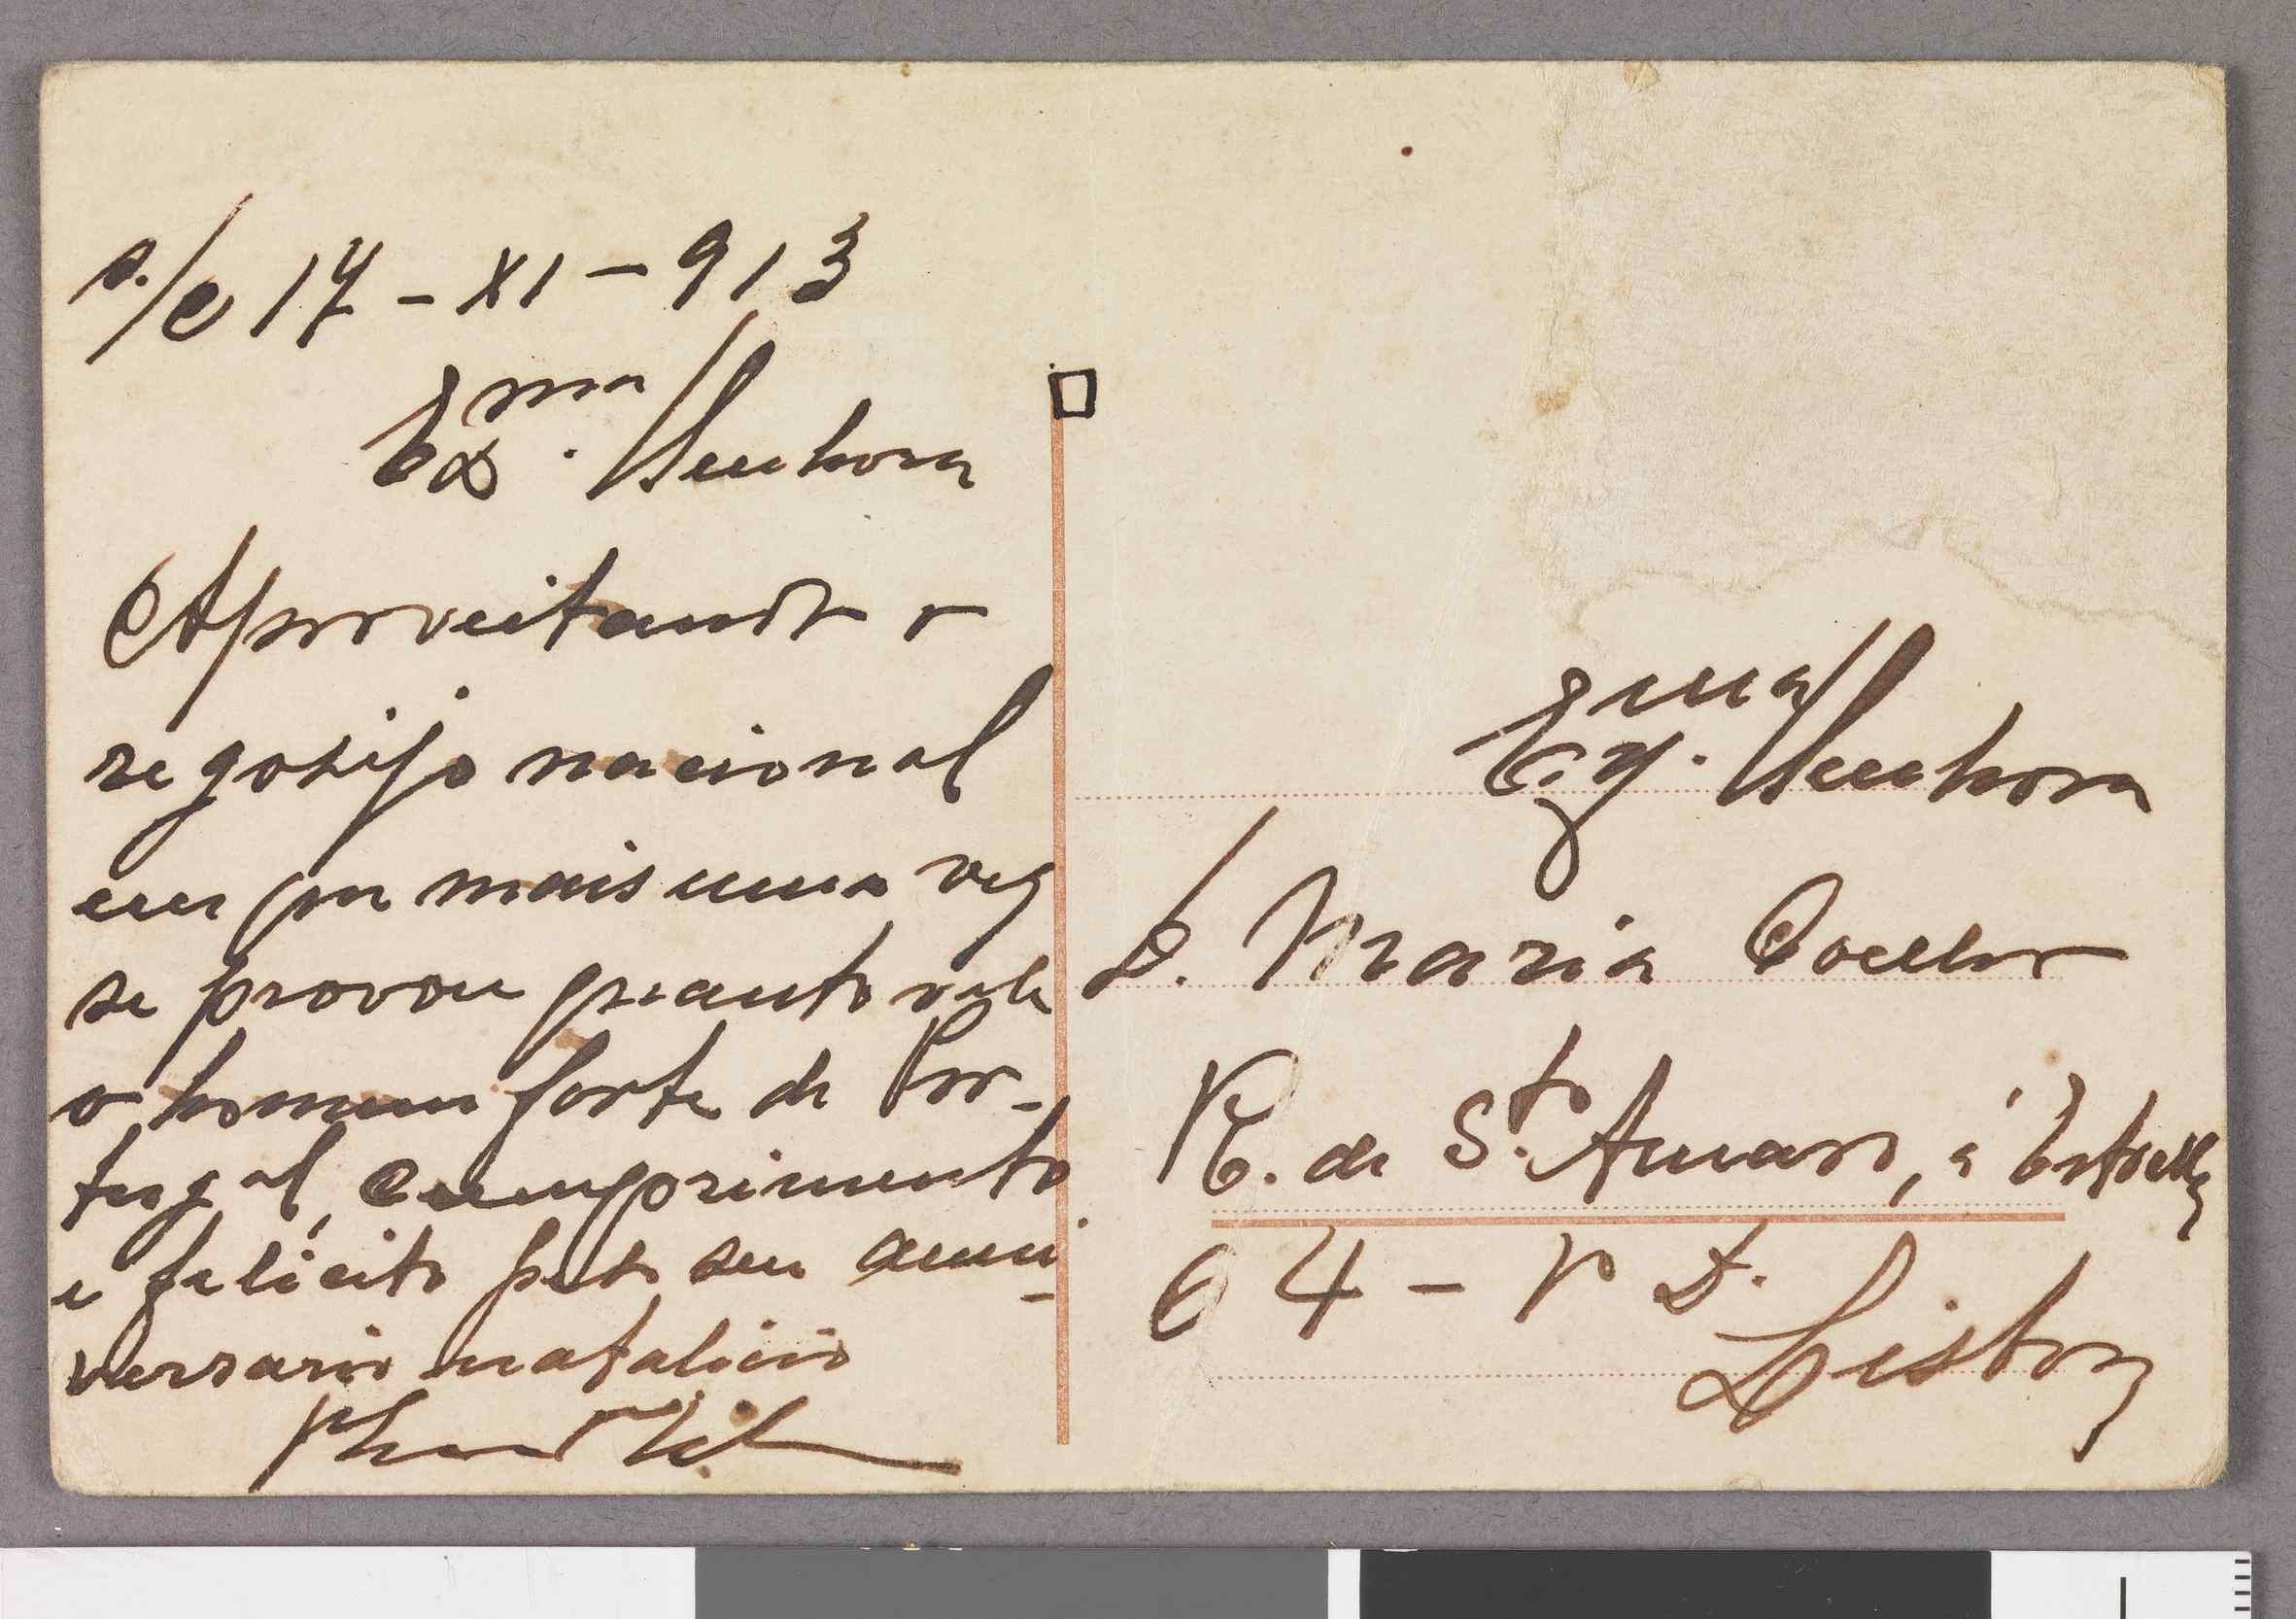 s./c 17-XI-913
Exma. Senhora
Aproveitando o
regosijo nacional
em que mais uma vez
se provou quanto vale
o homem forte de Por-
tugal, cumprimento
e felicito pelo seu anni-
versario natalicio
Exma. Senhora
D. Maria Coelho
R. de Sto. Amaro, á Estrella
64 - r D.
Lisboa